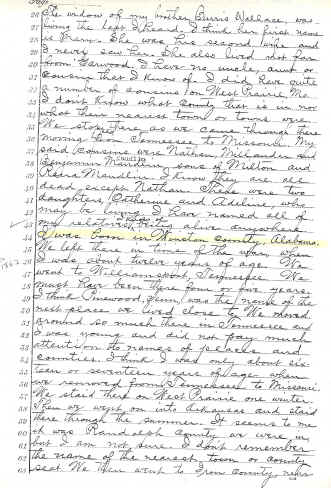 26 The widow of my brother Burris Wallace, was
27 living the last I heard. I think her first name
28 is Fran. She was his second wife and
29 I never saw her. She also lived not far
30 from Earwood. I have no uncle, aunt or
31 cousin that I know of. I did have quite
32 a number of cousins on West Prairie, Mo.
33 I don't know what County that is in nor
34 what their nearest town or towns were.
35 We stopped there, as we came through there
36 moving from Tennessee to Missouri. My
37 said cousins were Nathan, Milander and
38 Benjamin Mauldin, sons of Milton and
39 Mauldin. I know they are all
40 dead except Nathan. There were two
41 daughters, Catherine and Adeline, who
42 may be living. I have named all of
43 my relatives being alive anywhere.
44 I was born in Winston County, Alabama.
45 We left there in time of the war, when
46 I was about twelve years of age. We
47 went to Tennessee. We
48 must have been there four or five years.
49 I think Pinewood, Tenn, was the name of the
50 next place we lived close to. We moved
51 around so much there in Tennessee and
52 I was young and did not pay much
53 attention to names of places and
54 counties. I think I was only about six-
55 teen or seventeen years of age when
56 we removed from Tennessee to Missouri.
57 We staid there on West Prairie one winter.
58 Then we went on into Arkansas and staid
59 there through the summer. It seems to me
60 it was Randolph County we were in
61 but I am not sure. I don't remember
62 the name of the nearest town or county
63 seat. We then went to Iron County, near